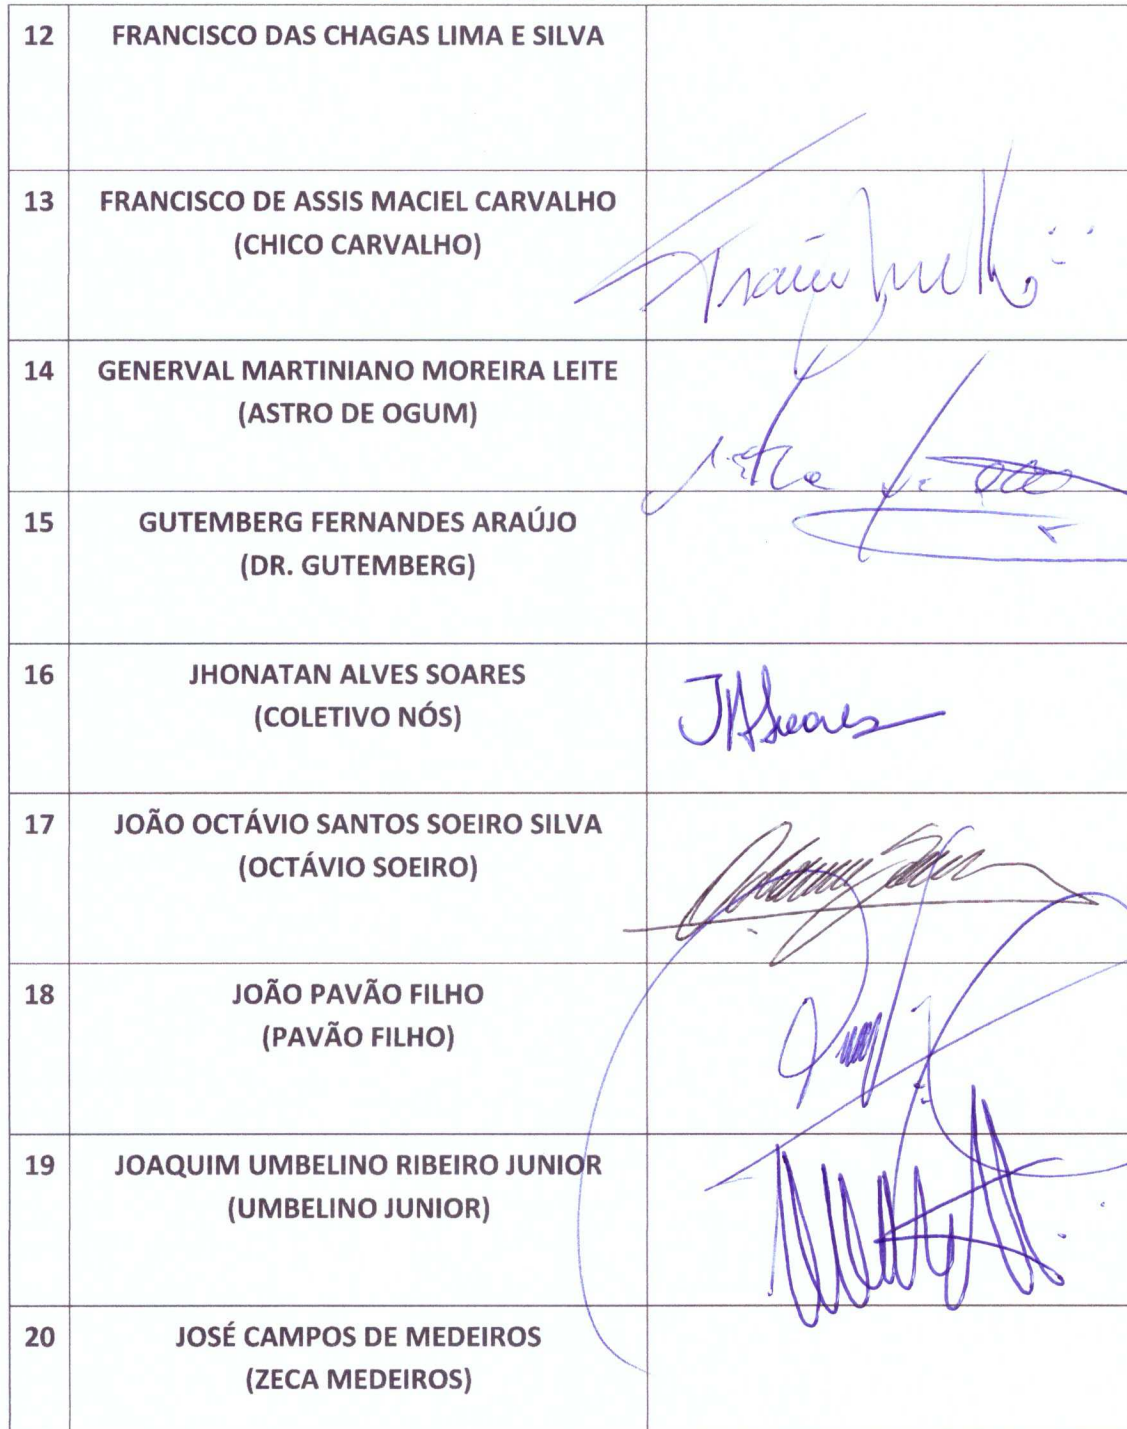 12 FRANCISCO DAS CHAGAS LIMA E SILVA
13 FRANCISCO DE ASSIS MACIEL CARVALHO
(CHICO CARVALHO)
14 GENERVAL MARTINIANO MOREIRA LEITE
(ASTRO DE OGUM)
15 GUTEMBERG FERNANDES ARAÚJO
(DR. GUTEMBERG)
16 JHONATAN ALVES SOARES
(COLETIVO NÓS)
JASoares
17 JOÃO OCTÁVIO SANTOS SOEIRO SILVA
(OCTÁVIO SOEIRO)
18 JOÃO PAVÃO FILHO
(PAVÃO FILHO)
19 JOAQUIM UMBELINO RIBEIRO JUNIOR
(UMBELINO JUNIOR)
20 JOSÉ CAMPOS DE MEDEIROS
(ZECA MEDEIROS)